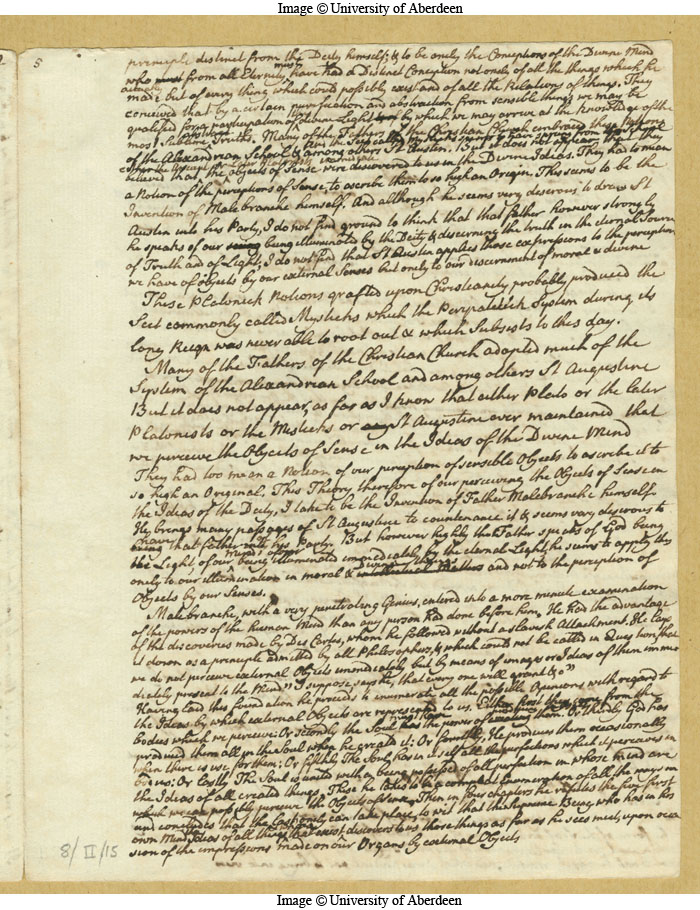 Image © University of Aberdeen
5
principle distinct from the Deity himself; & to be onely the Conceptions of the Divine Mind
who must from all Eternity have had a Distinct Conception not onely of all the things which he
actually
made but of every thing which could possibly exist and of all the Relations of things. They
conceived that by a certain purification and abstraction from sensible things we may be
qualified for a participation of this divine Light by which we may arrive at the knowledge of the
most Sublime Truths. Many of the Fathers of the Christian Church embraced these Notions
of the Alexandrian School & among others St Austin. But it does not appear that they
believed that the objects of Sense were discovered to us in the Divine Ideas. They had to mean
a Notion of the perceptions of Sense, to ascribe them to so high an Origin. This seems to be the
Invention of Malebranche himself. And although he seems very desirous to draw St
Austin into his Party, I do not find ground to think that that father however strongly
he speaks of our being illuminated by the Deity & discerning the truth in the eternal Source
of Truth and of Light, I do not find that St Austin applies those expressions to the perceptions
we have of objects by our external Senses but only to our discernment of moral & divine
These Platonick Notions grafted upon Christianity probably produced the
Sect commonly called Mysticks which the Peripatetick System during its
long Reign was never able to root out & which Subsists to this day.
Many of the Fathers of the Christian Church adopted much of the
System of the Alexandrian School and among others St Augustine
But it does not appear, as far as I know that either Plato or the later
Platonists or the Misticks or St Augustine ever maintained that
we perceive the Objects of Sense in the Ideas of the Divine Mind
They had too mean a Notion of our perception of sensible Objects to ascribe it to
so high an Original. This Theory therefore of our perceiving the Objects of Sense in
the Ideas of the Deity, I take to be the Invention of Father Malebranche himself.
He brings many passages of St Augustine to countenance it & seems very desirous to
have that father of his Party. But however highly that Father speaks of God being
the Light of our minds & of our being illuminated immediately by the eternal Light, he seems to apply this
onely to our illumination in moral & Divine things intellectual Matters and not to the perception of
Objects by our Senses.
Malebranche, with a very penetrating Genius, entered into a more minute examination
of the powers of the human Mind than any person had done before him. He had the advantage
of the discoveries made by Des Cartes, whom he followed without a slavish Attachment. He lays
it down as a principle admitted by all Philosophers, & which could not be called in Question, that
we do not perceive external Objects immediately but by means of images or Ideas of them imme
diately present to the Mind "I suppose, says he, that every one will grant &c"
Having laid this foundation he proceeds to enumerate all the possible Opinions with regard to
the Ideas by which external Objects are represented to us. Either first they come from the
bodies which we perceive: Or secondly the Soul has the power of producing them. Or thirdly God has
produced them all in the Soul when he created it: Or fourthly, He produces them occasionally
when there is use for them: Or fifthly The Soul has in it self all the perfections which it perceives in
bodys: Or lastly The Soul is united with a being possessed of all perfection in whose mind are
the Ideas of all created things. These he takes to be a compleat Enumeration of all the ways in
which we can possibly perceive the Objects of sense. Then in four chapters he refutes the five first
and concludes that the last onely can take place, to wit that the Supreme Being who has in his
own Mind Ideas of all things that exist discovers to us those things as far as he sees meet, upon occa
sion of the impressions made on our Organs by external Objects
8/II/15
Image © University of Aberdeen